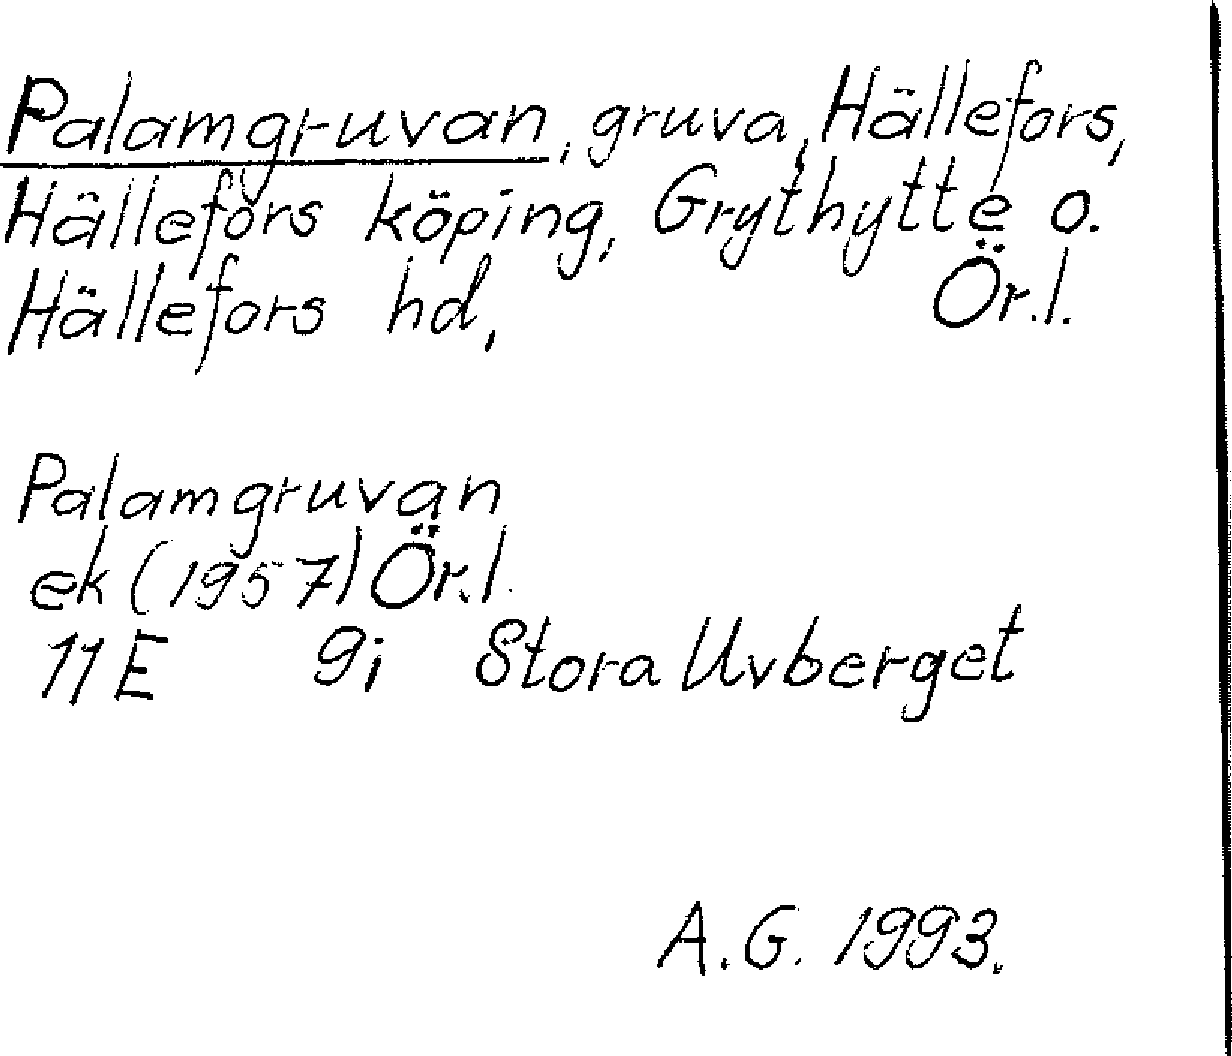 Palamgruvan, gruva, Hällefors,
Hällefors köping, Grythytte o.
Hällefors hd, Ör.l.
Palamgruvan
ek (1957) Ör.l.
11E 9i Stora Uvberget
A.G. 1993.